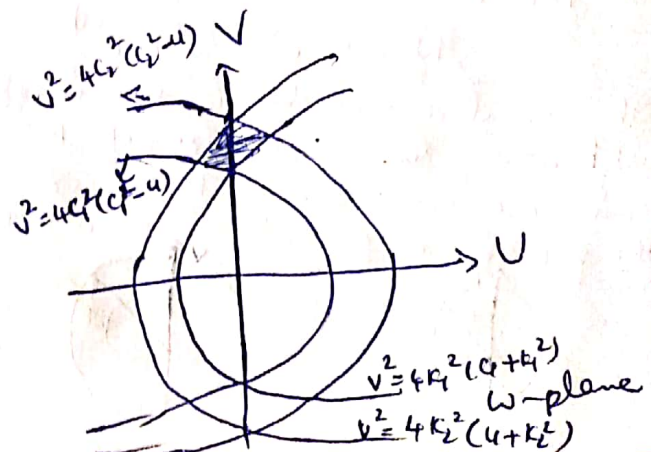 V
v² = 4c₂²(c₂²-u)
v² = 4c₁²(c₁²-u)
U
v² = 4k₁²(u+k₁²)
w-plane
v² = 4k₂²(u+k₂²)